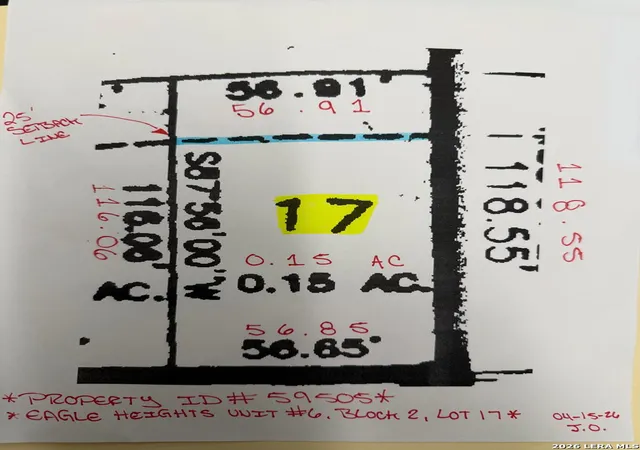 56.91'
56.91
25'
SETBACK
LINE
S87°56'00"W,
116.06'
116.06
17
118.55'
118.55
0.15 AC
AC. 0.15 AC.
56.85
56.85'
*PROPERTY ID# 59505*
* EAGLE HEIGHTS UNIT #6, BLOCK 2, LOT 17*
04-15-26
J.O.
2026 LERA MLS